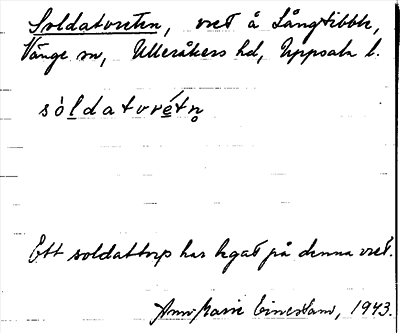 Soldatvreten, vret å Långtibble,
Vänge sn, Ulleråkers hd, Uppsala l.
sòldatvrétn̥
Ett soldattorp har legat på denna vret.
AnnMarie Einerstam, 1943.